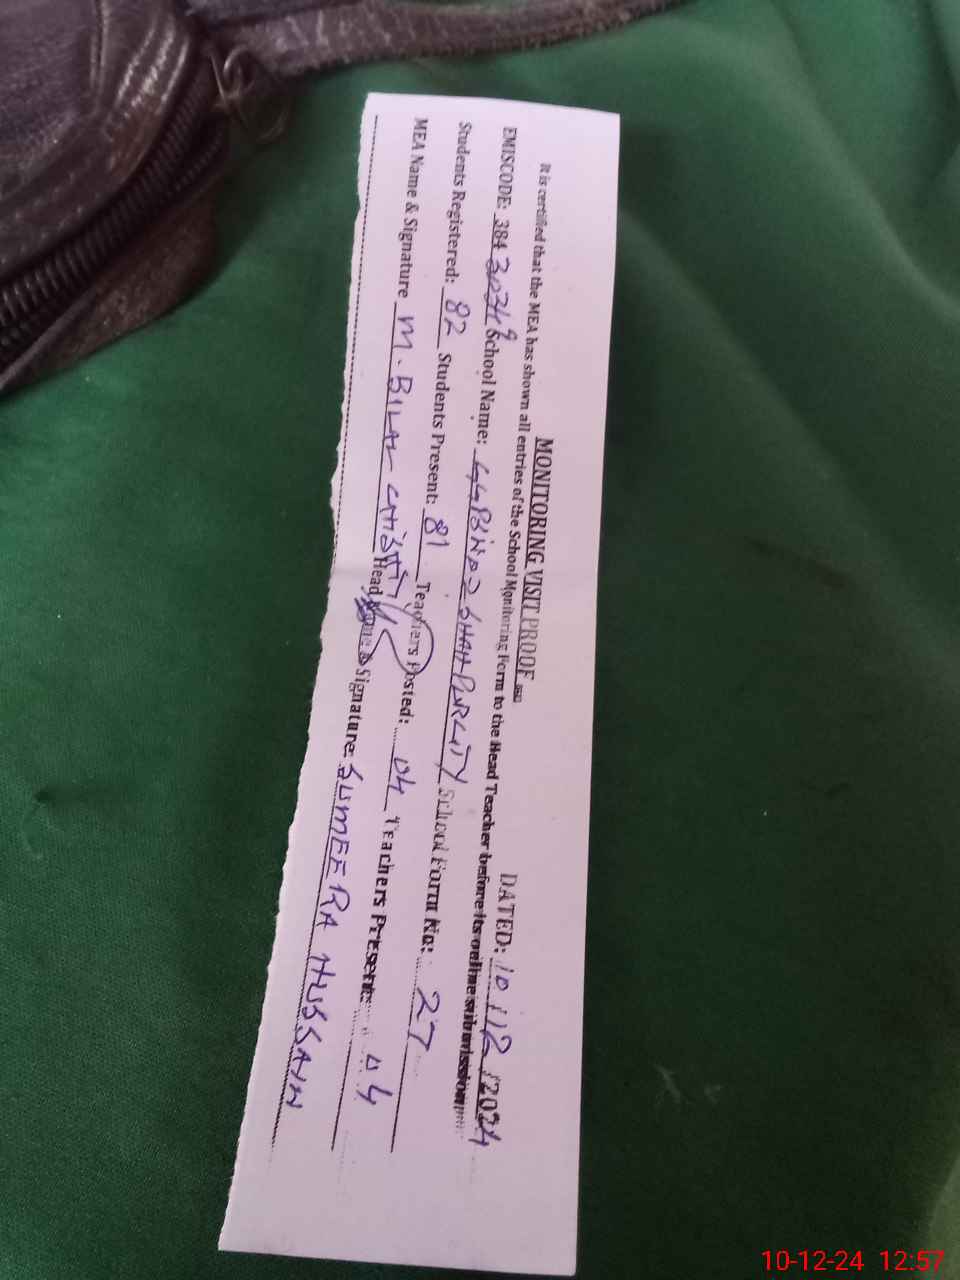 MONITORING VISIT PROOF DATED: 10/12/2024
It is certified that the MEA has shown all entries of the School Monitoring Form to the Head Teacher before its online submission
EMISCODE: 38430349 School Name: SHAHPUR CITY School Form No: 27
Students Registered: 82 Students Present: 81 Teachers Posted: 04 Teachers Present: 04
MEA Name & Signature M. BILAL CHISHTY Head Name & Signature: SUMEERA HUSSAIN
10-12-24 12:57